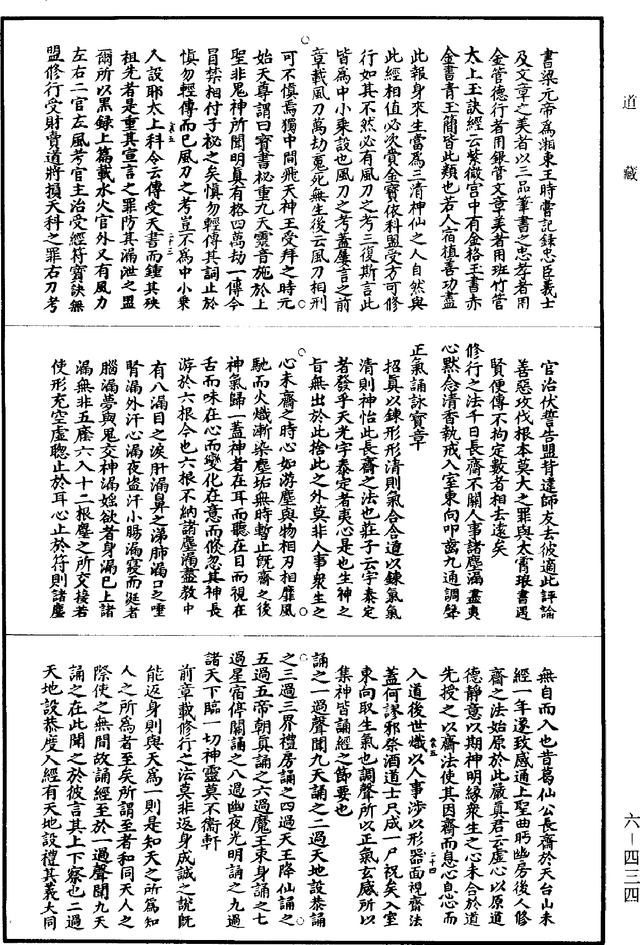 道藏
書梁元帝為湘東王時嘗記錄忠臣義士
及文章之美者以三品筆書之忠孝者用
金管德行者用銀管文章美者用班竹管
太上玉訣經云紫微宮中有金格玉書赤
金書青玉簡皆此類也若人宿植善功盡
此報身來生當為三清神仙之人自然與
此經相值必次賫金寶依科盟受方可修
行如其不然必有風刀之考三復斯言此
皆為中小乘設也風刀之考蓋屢言之前
章載風刀萬劫冤死無生後云風刀相刑
可不慎焉獨中間飛天神王受拜之時元
始天尊謂曰寶書秘重九天靈音施於上
聖非鬼神所聞明真有格四萬劫一傳今
冒禁相付子秘之矣慎勿輕傳其詞止於
慎勿輕傳而已風刀之考豈不為中小乘
人設耶太上科令云傳受天書而鍾其殃
祖先者是重其宣言之罪防其漏泄之盟
爾所以黑錄上篇載水火官外又有風刀
左右二官左風考官主治受經符寶訣無
盟修行受財費道將損天科之罪右刀考
官治伏誓告盟背違師友去彼適此評論
善惡攻伐根本莫大之罪與太霄琅書遇
賢便傳不拘定數者相去遠矣
修行之法千日長齋不關人事諸塵漏盡夷
心默念清香執戒入室東向叩齒九通調聲
正氣誦詠寶章
招真以鍊形形清則氣合合道以鍊氣氣
清則神怡此長齋之法也莊子云宇泰定
者發乎天光宇泰定者夷心是也生神之
旨無出於此捨此之外莫非人事衆生之
心未齋之時心如游塵與物相刃相靡風
馳而火熾漸染塵垢無時暫止既齋之後
神氣歸一蓋神者在耳而聽在目而視在
舌而味在心而變化在意而倏忽其神長
游於六根今也六根不納諸塵漏盡教中
有八漏目之淚肝漏鼻之涕肺漏口之唾
腎漏外汗心漏夜盜汗小腸漏寢而涎者
腦漏夢與鬼交神漏婬欲者身漏已上諸
漏無非五塵六入十二根塵之所交接若
使形充空虛聽止於耳心止於符則諸塵
無自而入也昔葛仙公長齋於天台山未
經一年遂致感通上聖曲眄幽房後人修
齋之法始原於此嚴真君云虛心以原道
德靜意以期神明緣衆生之心未合於道
先授之以齋法使其因齋而息心息心而
入道後世熾以人事涉以形器面視齋法
蓋何謬邪祭酒道士尺咸一尸祝矣入室
東向取生氣也調聲所以正氣玄感所以
集神皆誦經之節要也
誦之一過聲聞九天誦之二過天地設恭誦
之三過三界禮房誦之四過天王降仙誦之
五過五帝朝真誦之六過魔王束身誦之七
過星宿停關誦之八過幽夜光明誦之九過
諸天下臨一切神靈莫不衛軒
前章載修行之法莫非返身成誠之說既
能返身則與天為一則是知天之所為知
人之所為者至矣所謂至者和同天人之
際使之無間故誦經至於一過聲聞九天
誦之在此聞之於彼言其上下察也二過
天地設恭度人經有天地設禮其義大同
六－四三四